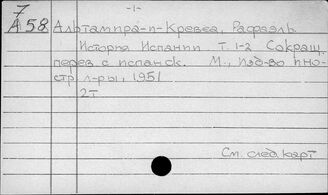 -1-
7
А58 Альтамира-и-Кревеа, Рафаэль
История Испании Т. 1-2 Сокращ.
перев с испанск. М., Изд-во Ино-
стр л-ры, 1951
2т
См. след. карт